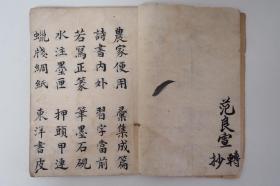 范良宣
轉抄
農家便用 彙集成篇
詩書內外 習字當前
若寫正篆 筆墨石硯
水注墨匣 押頭甲連
蠟牋綢紙 東洋書皮